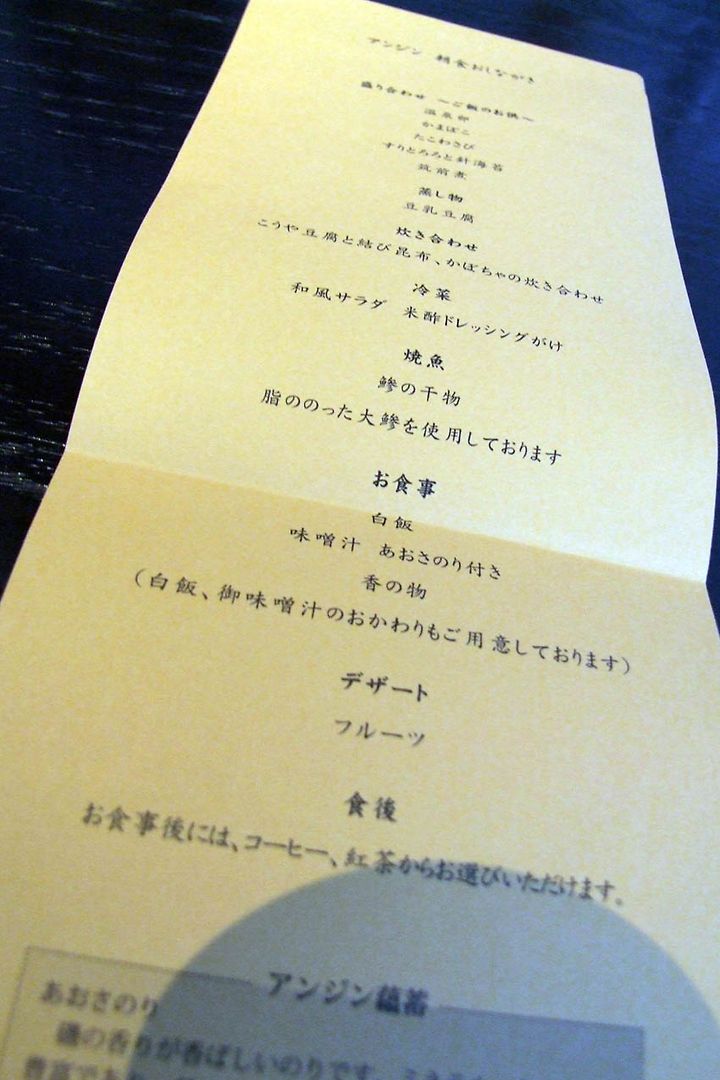 アンジン 朝食おしながき
盛り合わせ ～ご飯のお供～
温泉卵
かまぼこ
たこわさび
すりとろろと針海苔
筑前煮
蒸し物
豆乳豆腐
炊き合わせ
こうや豆腐と結び昆布、かぼちゃの炊き合わせ
冷菜
和風サラダ 米酢ドレッシングがけ
焼魚
鯵の干物
脂ののった大鯵を使用しております
お食事
白飯
味噌汁 あおさのり付き
香の物
（白飯、御味噌汁のおかわりもご用意しております）
デザート
フルーツ
食後
お食事後には、コーヒー、紅茶からお選びいただけます。
アンジン蘊蓄
あおさのり
磯の香りが香ばしいのりです
豊富で